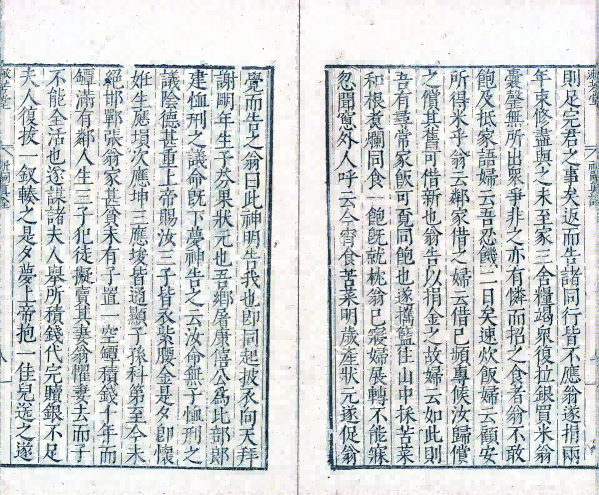 則足完君之事矣返而告諸同行皆不應翁遂捐兩
年束修盡與之未至家三舍糧竭衆復拉銀買米翁
囊罄無所出衆爭非之亦有憐而招之食者翁不敢
飽及抵家語婦云吾忍饑二日矣速炊飯婦云顧安
所得米乎翁云鄰家借之婦云借已頻專候汝歸償
之償其舊可借新也翁告以捐金之故婦云如此則
吾有尋常家飯可覓同飽也遂攜籃往山中採苦菜
和根煮爛同食一飽既就枕翁已寢婦展轉不能寐
忽聞窻外人呼云今宵食苦菜明歲産狀元遂促翁
覺而告之翁曰此神明告我也即同起披衣向天拜
謝明年生子芬果狀元也吾鄕屠康僖公爲比部郎
建恤刑之議命旣下夢神告之云汝命無子恤刑之
議陰德甚重上帝賜汝三子皆衣紫腰金是夕即懷
姙生應塤次應坤三應埈皆通顯子孫科第至今未
絕邯鄲張翁家甚貧未有子置一空罈積錢十年而
罈滿有鄰人生三子犯徒擬賣其妻翁懼妻去而子
不能全活也遂謀諸夫人舉所積錢代完贖銀不足
夫人復拔一釵輳之是夕夢上帝抱一佳兒送之遂